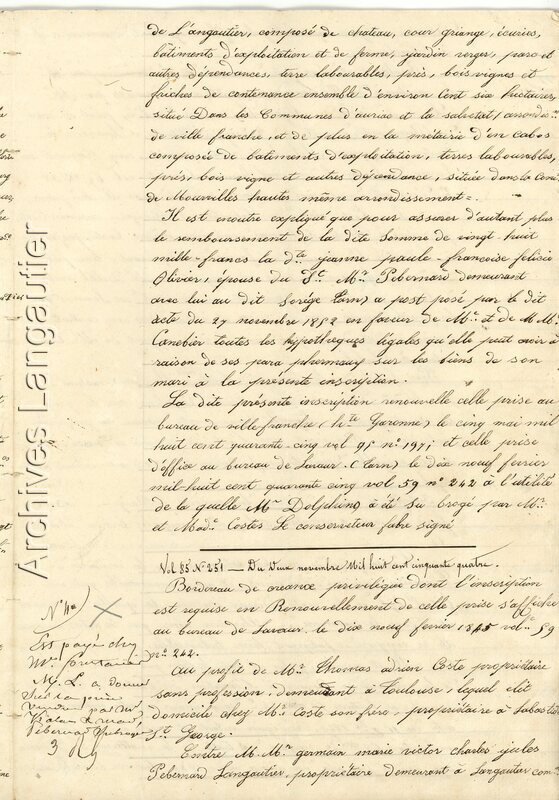 de L'angautier, composé de chateau, cour griange, écuries,
batiments d'exploitation et de ferme, jardin verger, parc et
autres dépendances, terre labourables, prés, bois vignes et
friches de contenance ensemble d'environ Cent six hectares,
situé Dans les Communes d'auriac et la salvetat, arrondis.nt
de ville franche, et de plus en la métairie d'en Cabos
composée de batiments d'exploitation, terres labourables,
prés, bois vigne et autres dépendance, située dans la Cone
de Mourvilles hautes même arrondissement =.
Il est enoutre expliqué que pour assurer d'autant plus
le remboursement de la dite somme de vingt-huit
mille francs la d.te jeanne paule francoise felicie
Olivier, épouse du S.r M.r Pébernard demeurant
avec lui au dit Soréze (Tarn) a post posé par le dit
acte du 27 novembre 1852 en faveur de M.r et de M. M.e
Canebier toutes les hypothéques légales qu'elle peut avoir à
raison de ses para phernaux sur les biens de son
mari à la présente inscription.
La dite présente inscription renouvelle celle prise au
bureau de villefranche (h.te Garonne) le cinq mai mil
huit cent quarante-cinq vol 95 n° 197; et celle prise
d'office au bureau de Lavaur (Tarn) le dix neuf fevrier
mil-huit cent quarante cinq vol 59 n° 242 à l'utélité
de la quelle M.r Dolphin a été su brogé par M.r
et Mad.e Costes Le conservateur fabre signé
Vol 85 N° 251 — Du Deux novembre Mil huit cent cinquante quatre.
Bordereau de creance privilégiée dont l'inscription
est requise en Renouvellement de celle prise d'office
au bureau de Lavaur le dix neuf fevrier 1845 vol. 59
n° 242.
Au profit de M.r Thomas adrien Coste propriétaire
sans profession, demeurant à Toulouse, lequel élit
domicile chez M.r Coste son frère, propriétaire à Labastide
S.t George.
Contre M. M.r germain marie victor charles jules
Pébernard Langautier, propriétaire demeurant à Langautier com
Est payé chez
M.r
M. L. a donné
par M.r
Pébernard
3
Archives Langautier